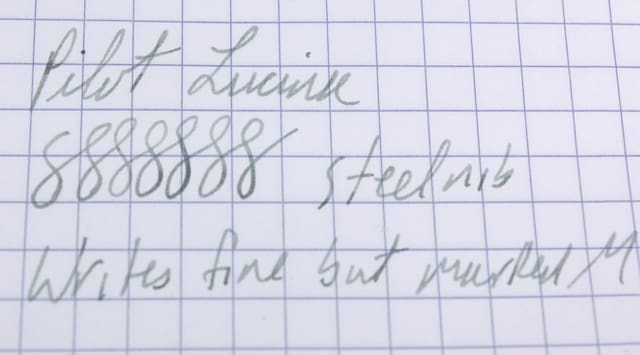 Pilot Lucina
8888888 steel nib
Writes fine but marked M